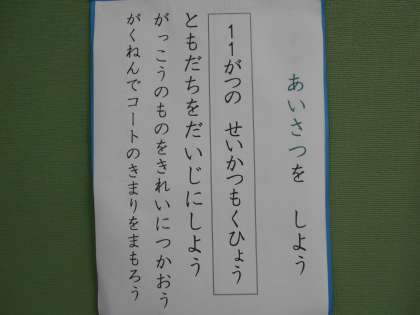 あいさつを　しよう
11がつの　せいかつもくひょう
ともだちをだいじにしよう
がっこうのものをきれいにつかおう
がくねんでコートのきまりをまもろう